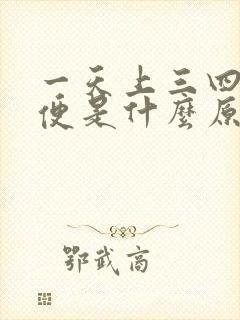 一天上三四
便是什麼原
鄂武商